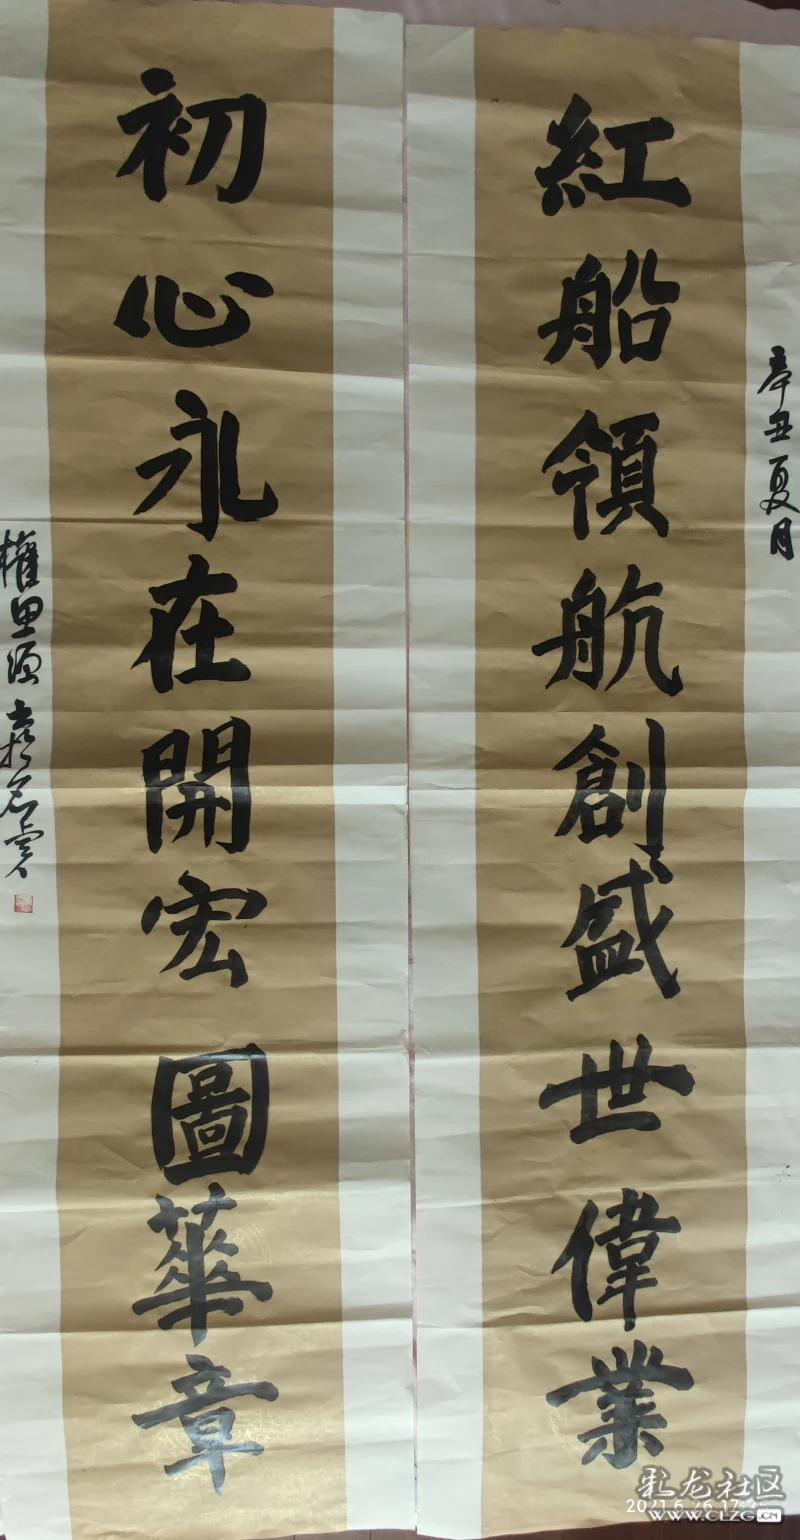 辛丑夏月
紅船領航創盛世偉業
初心永在開宏圖華章
2021.6.26 17:25
彩龙社区
WWW.CLZG.CN